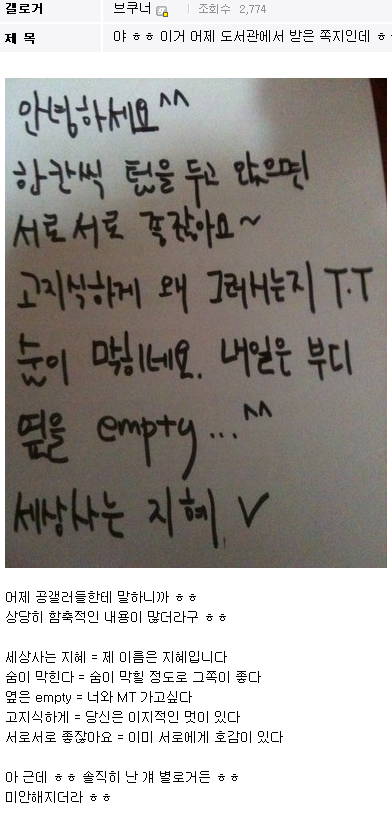 갤로거 브쿠너 | 조회수 2,774
제 목 야 ㅎㅎ 이거 어제 도서관에서 받은 쪽지인데 ㅎ
안녕하세요^^
한칸씩 텀을 두고 앉으면
서로서로 좋잖아요~
고지식하게 왜 그러시는지 T.T
숨이 막히네요. 내일은 부디
옆을 empty...^^
세상사는 지혜 V
어제 공갤러들한테 말하니까 ㅎㅎ
상당히 함축적인 내용이 많더라구 ㅎㅎ
세상사는 지혜 = 제 이름은 지혜입니다
숨이 막힌다 = 숨이 막힐 정도로 그쪽이 좋다
옆은 empty = 너와 MT 가고싶다
고지식하게 = 당신은 이지적인 멋이 있다
서로서로 좋잖아요 = 이미 서로에게 호감이 있다
아 근데 ㅎㅎ 솔직히 난 걔 별로거든 ㅎㅎ
미안해지더라 ㅎㅎ